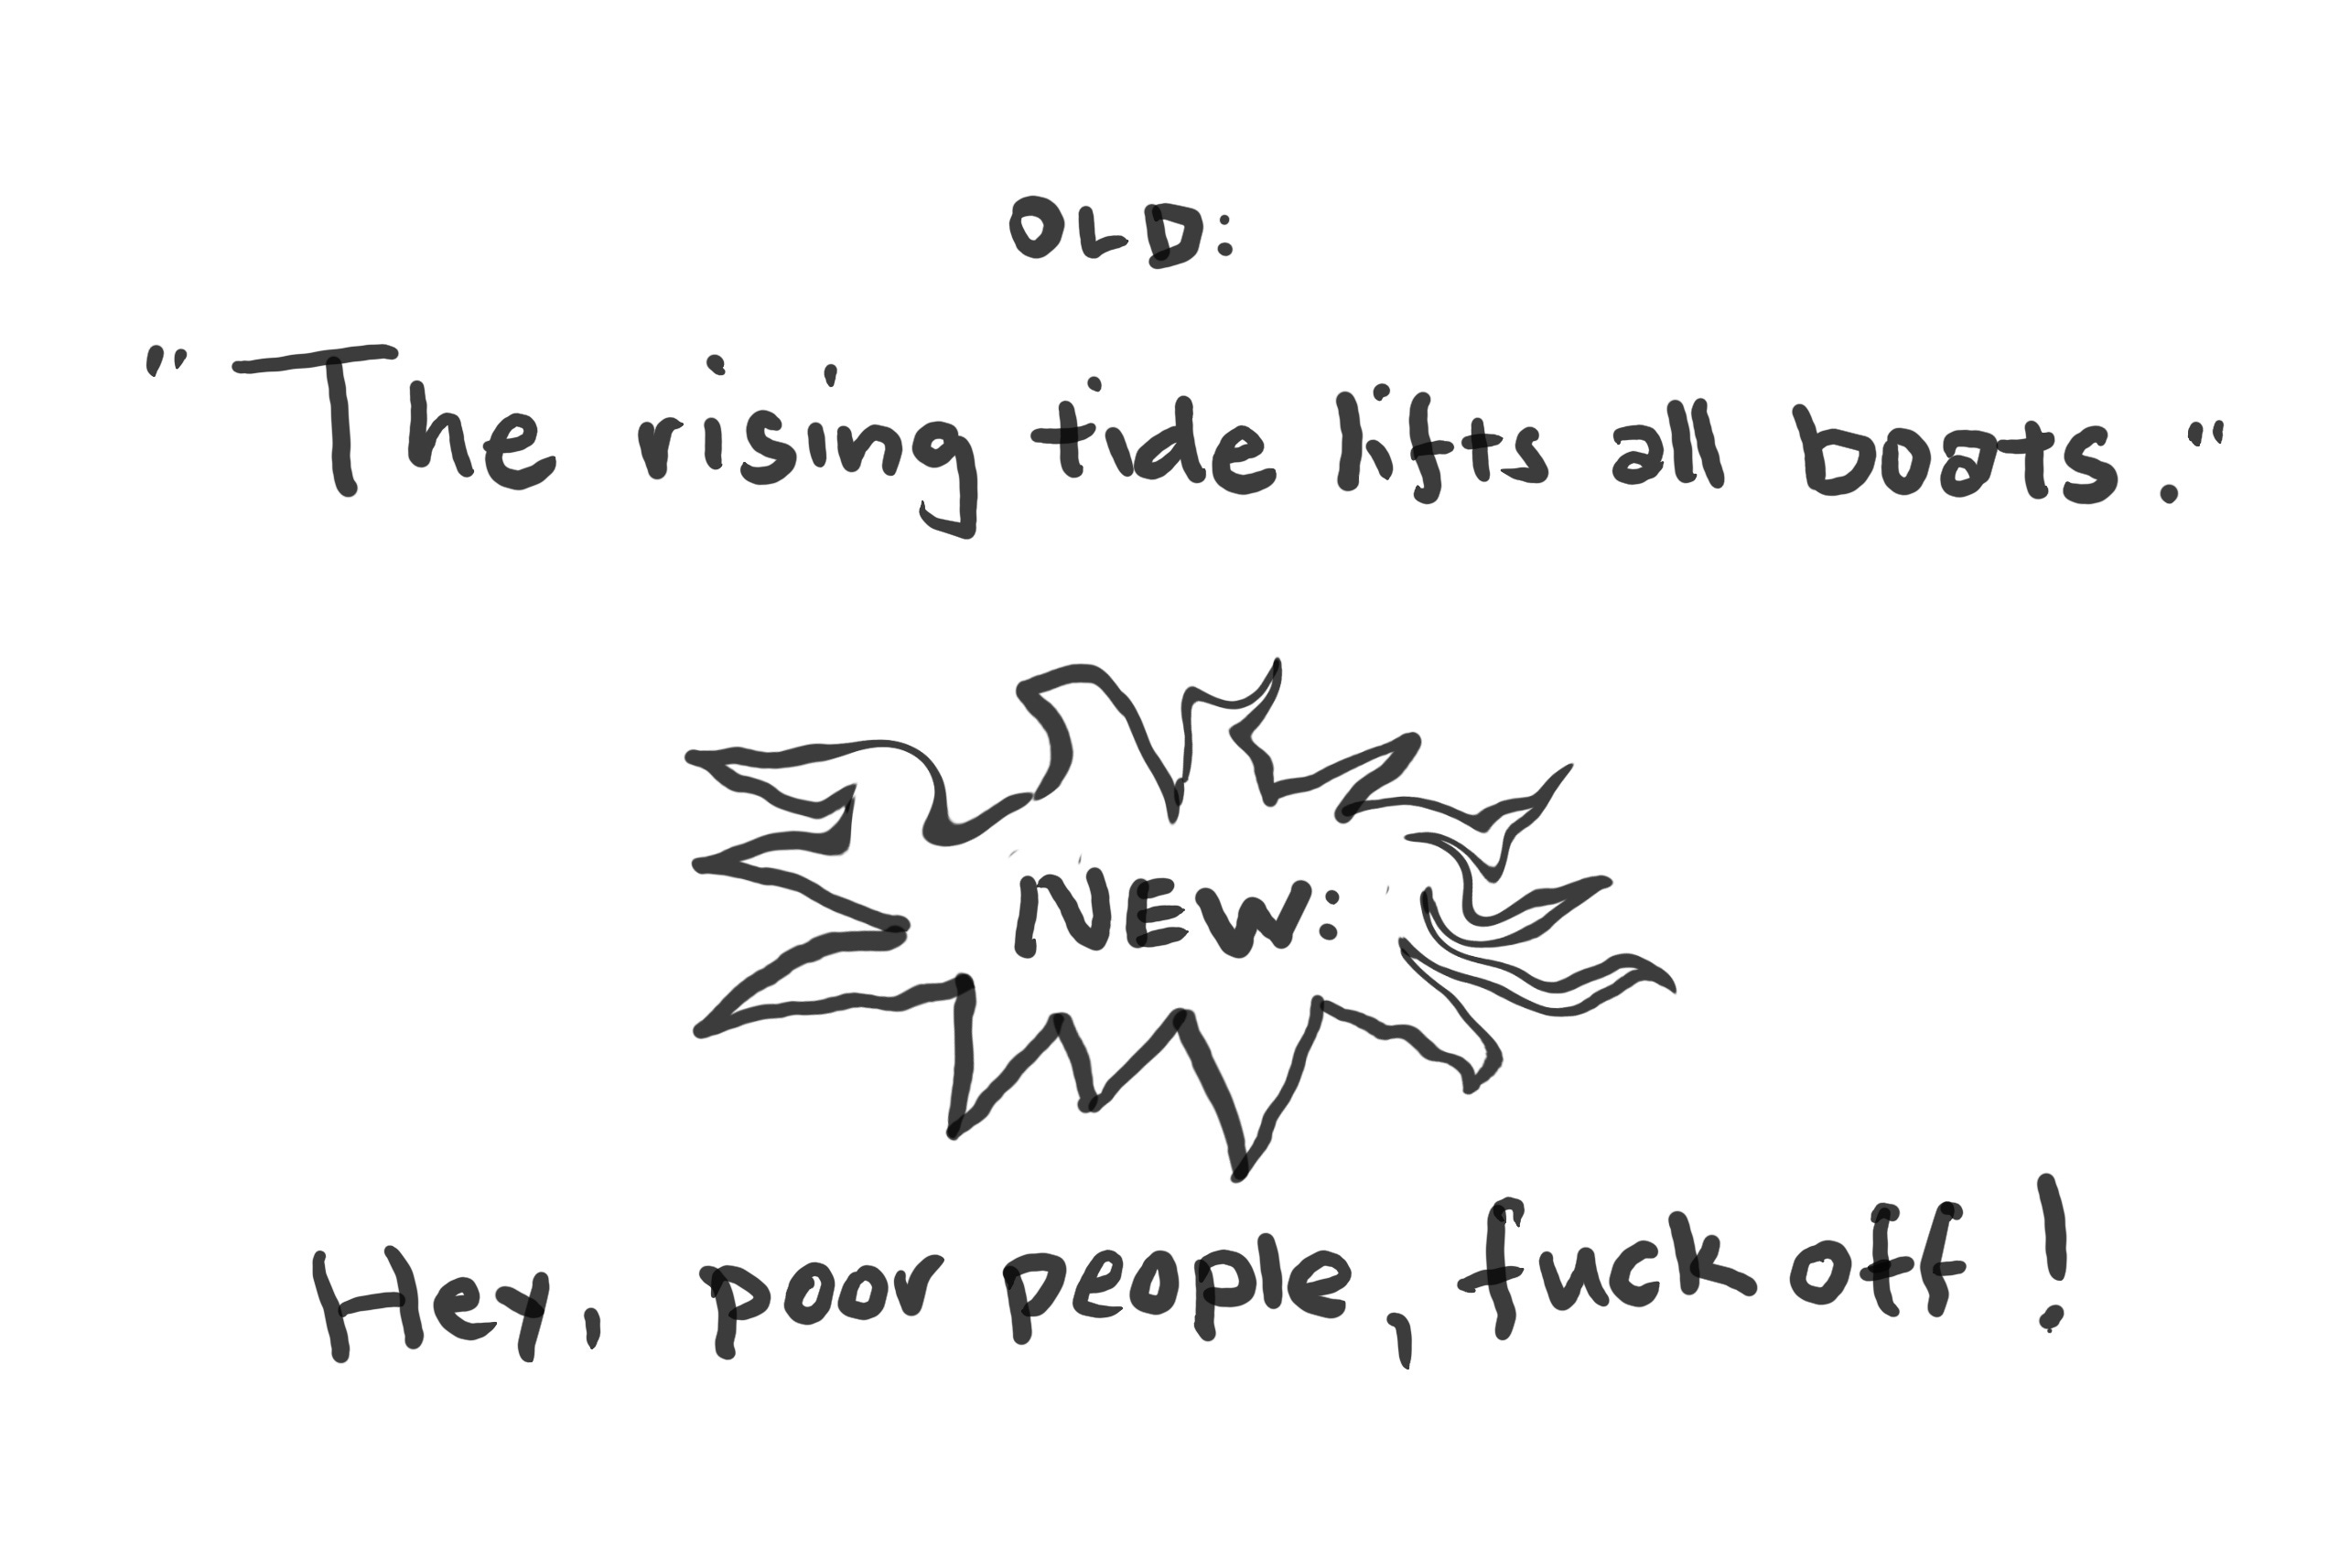 OLD:
"The rising tide lifts all boats."
NEW:
Hey, poor people, fuck off!